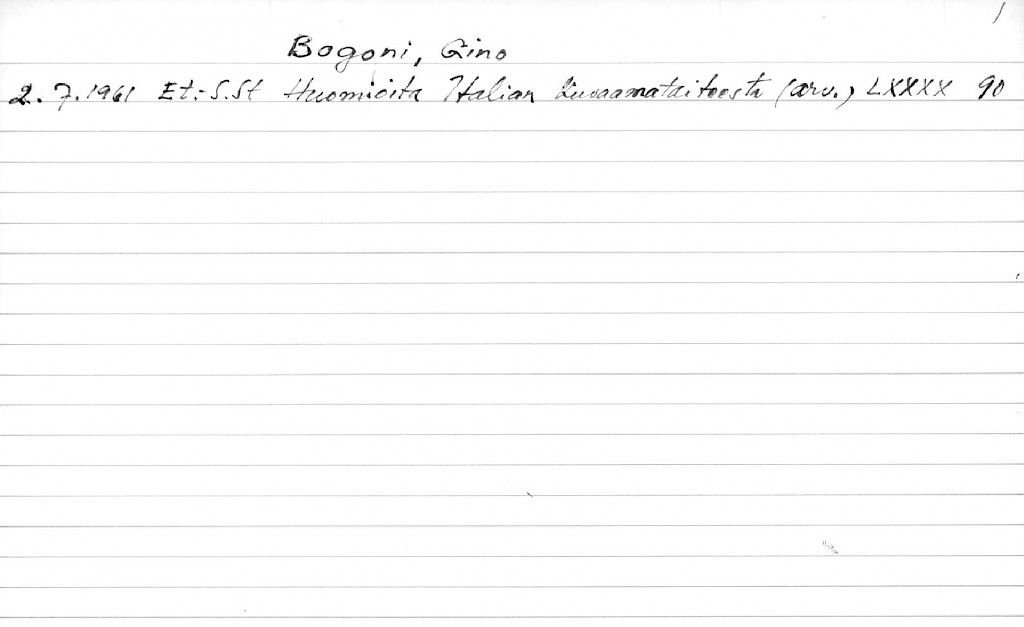 1
Bogoni, Gino
2.7.1961 Et.-S.St Huomioita Italian kuvaamataiteesta (arv.) LXXXX 90